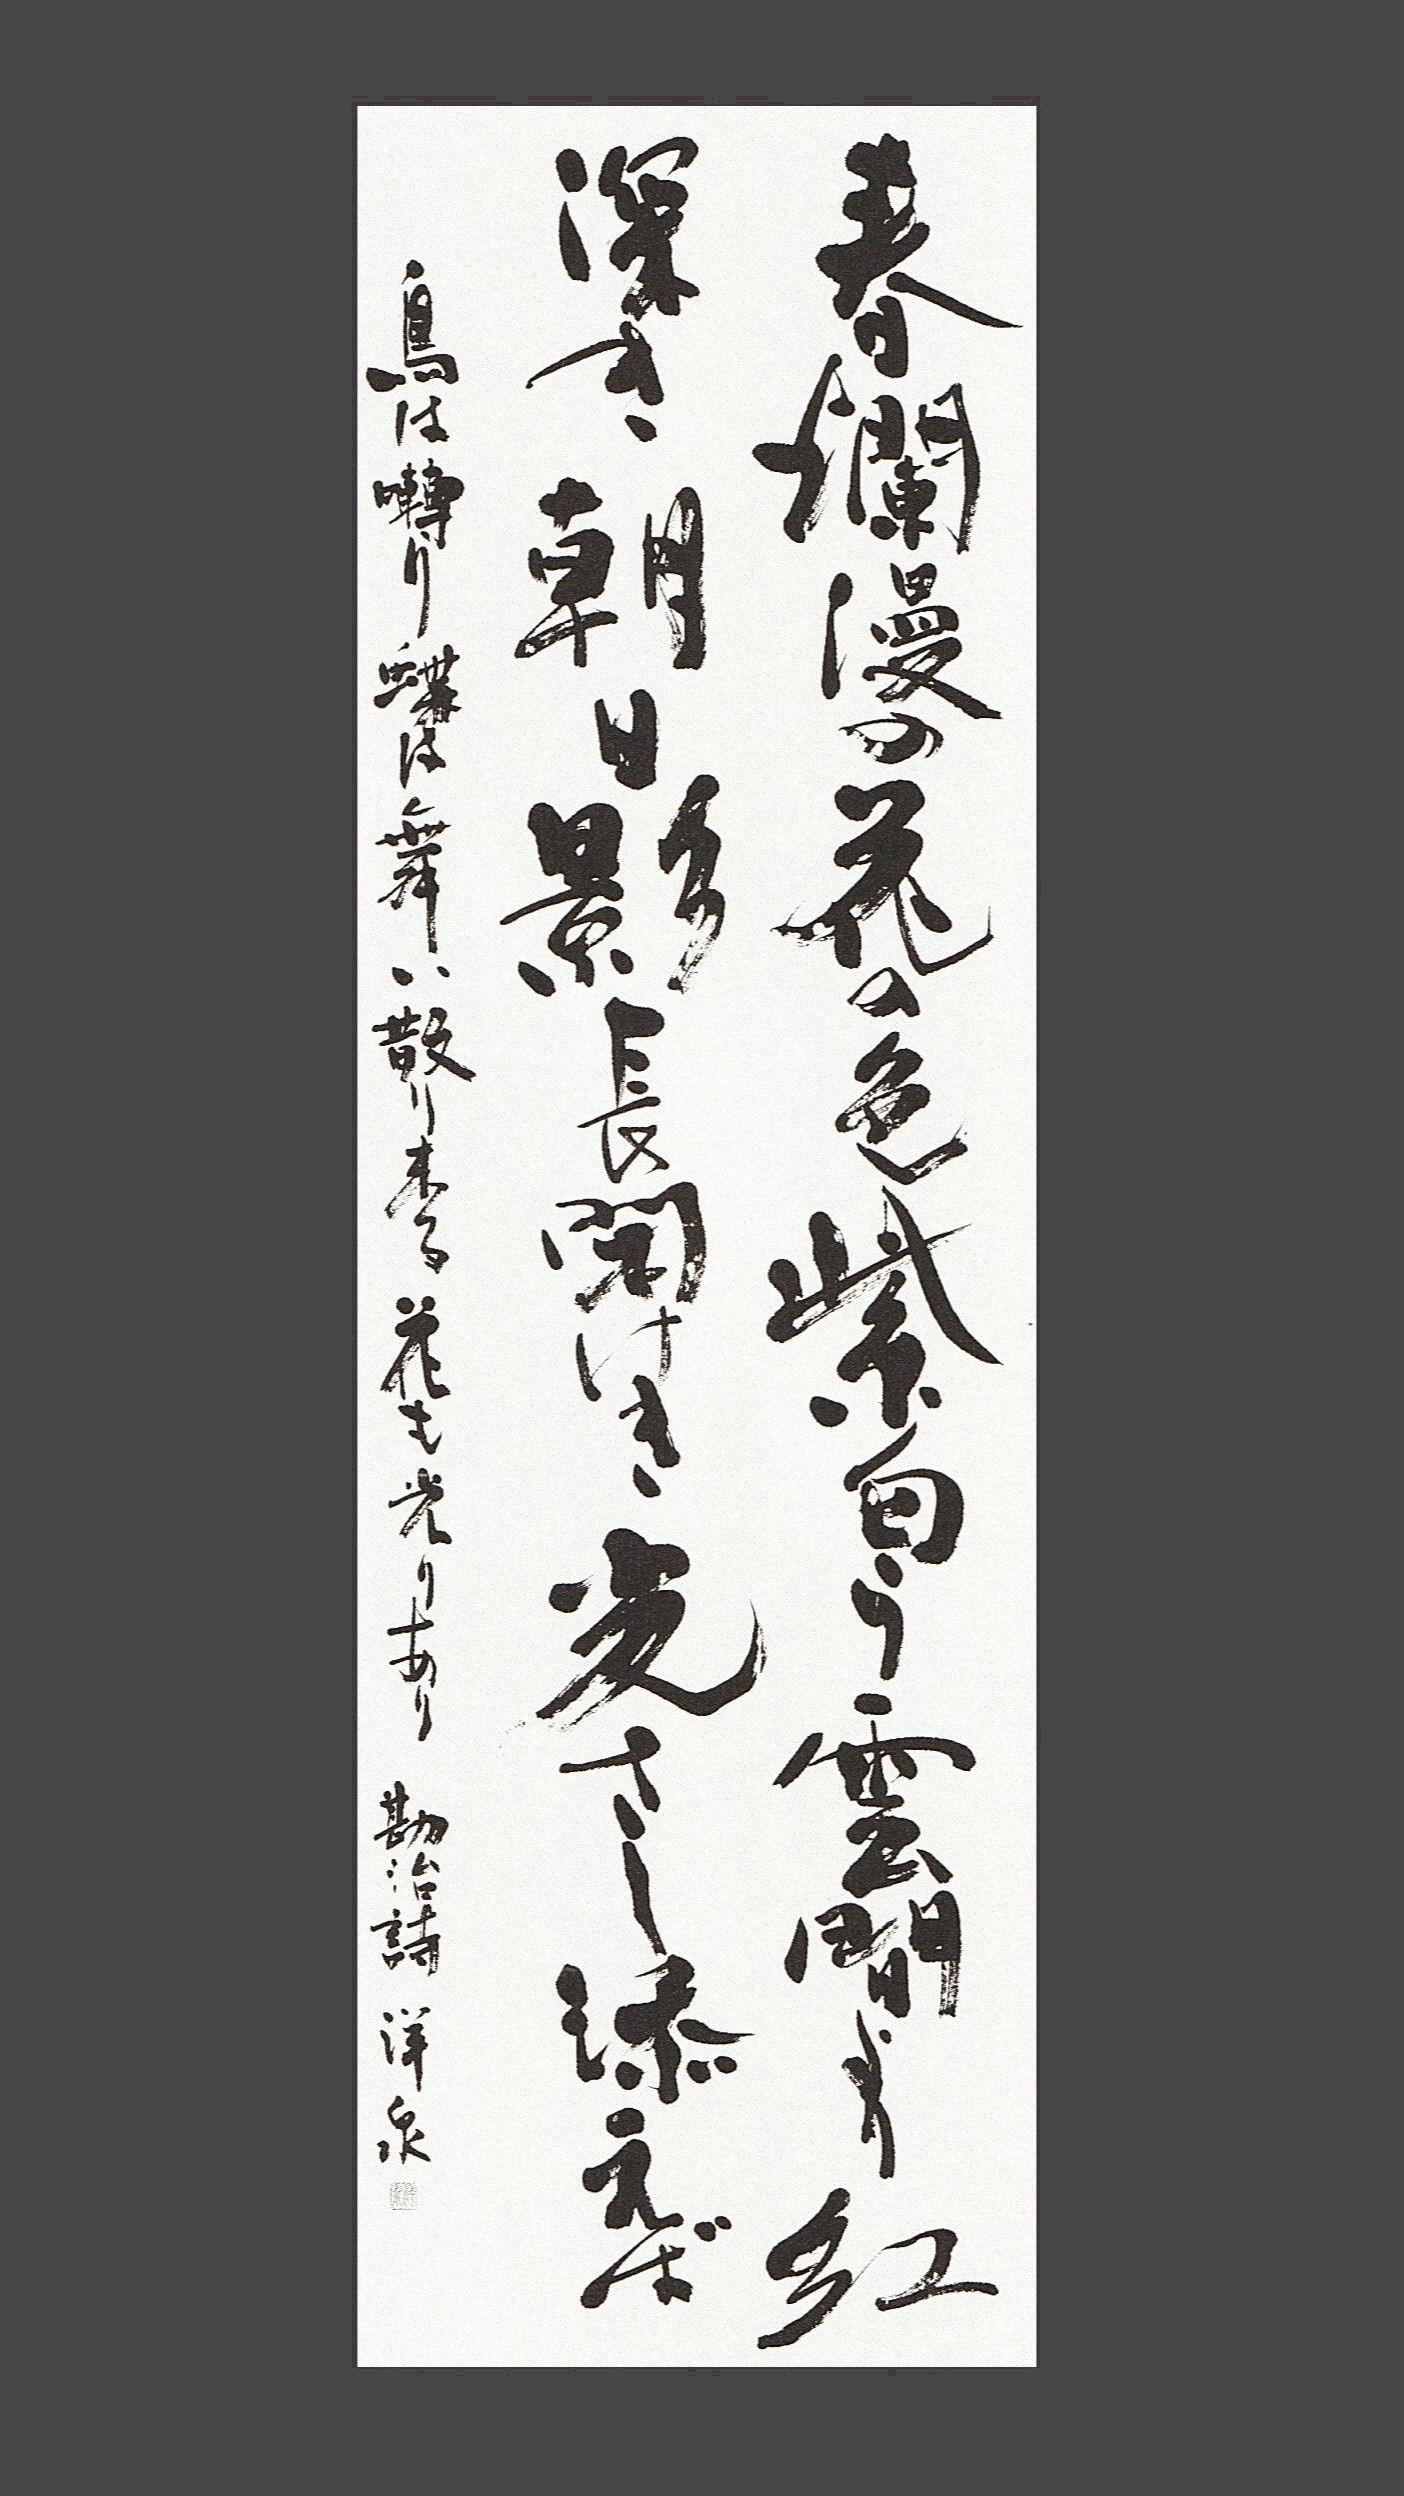 春爛漫の花の色紫匂う雲間より紅
深き朝日影長閑けき光さし添えば
鳥は囀り蝶は舞い散り来る花も光りあり 勘治詩 洋泉